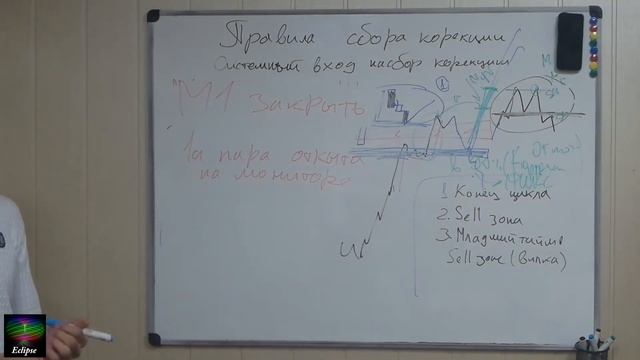 Правила сбора корекции
Системный вход на сбор корекции
М1 закрыть
1а пара открыта
на мониторе
1
1. Конец цикла
2. Sell зона
3. Младший тайм
Sell зоне (Вилка)
Eclipse